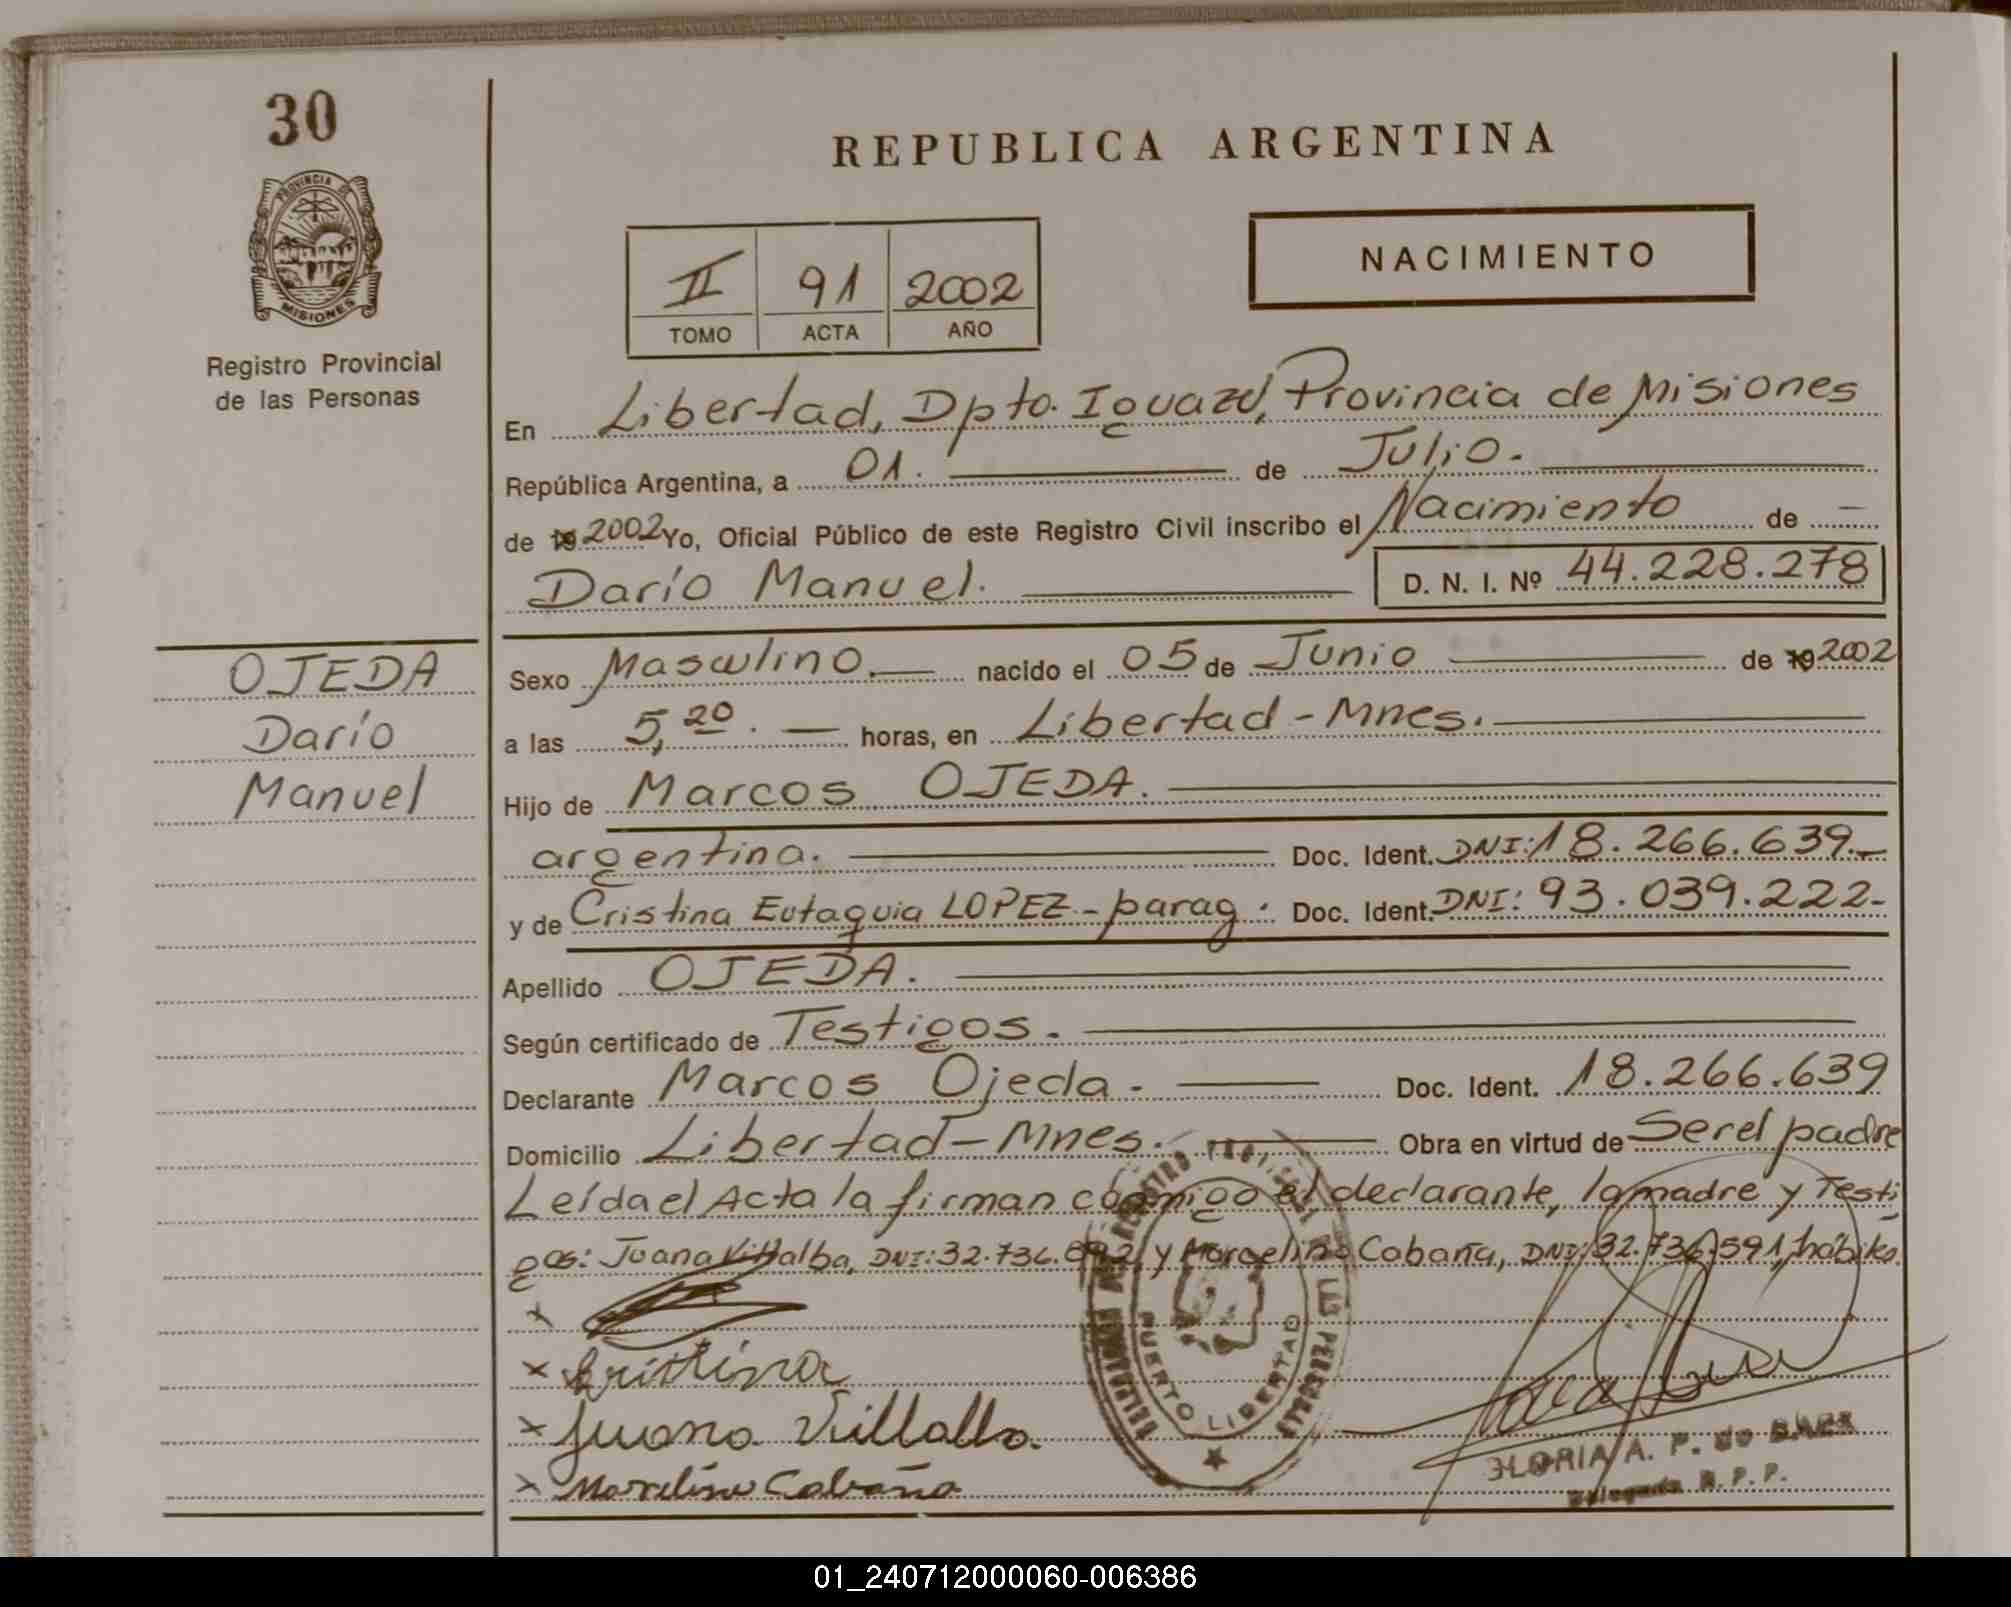 30
PROVINCIA DE
MISIONES
Registro Provincial
de las Personas
REPUBLICA ARGENTINA
NACIMIENTO
II 91 2002
TOMO ACTA AÑO
En Libertad, Dpto. Iguazú, Provincia de Misiones
República Argentina, a 01. de Julio.
de 19 2002 Yo, Oficial Público de este Registro Civil inscribo el Nacimiento de —
Darío Manuel. D. N. I. Nº 44.228.278
OJEDA
Darío
Manuel
Sexo Masculino. nacido el 05 de Junio de 19 2002
a las 5,20. — horas, en Libertad - Mnes.
Hijo de Marcos OJEDA.
argentina. Doc. Ident. DNI: 18.266.639.-
y de Cristina Eutaquia LOPEZ - parag. Doc. Ident. DNI: 93.039.222-
Apellido OJEDA.
Según certificado de Testigos.
Declarante Marcos Ojeda. Doc. Ident. 18.266.639
Domicilio Libertad - Mnes. Obra en virtud de Ser el padre
Leída el Acta la firman conmigo el declarante, la madre y Testi
gos: Juana Villalba, DNI: 32.736. y Marcelino Cabaña, DNI: 32.736.591, hábiles.
x
x Cristina
x Juana Villalba.
x Marcelino Cabaña
PUERTO LIBERTAD
GLORIA A. P. de BAEZ
Delegada R. P. P.
01_240712000060-006386